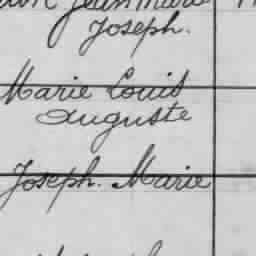 Jean Marie
Joseph.
Marie Louis
Auguste
Joseph. Marie